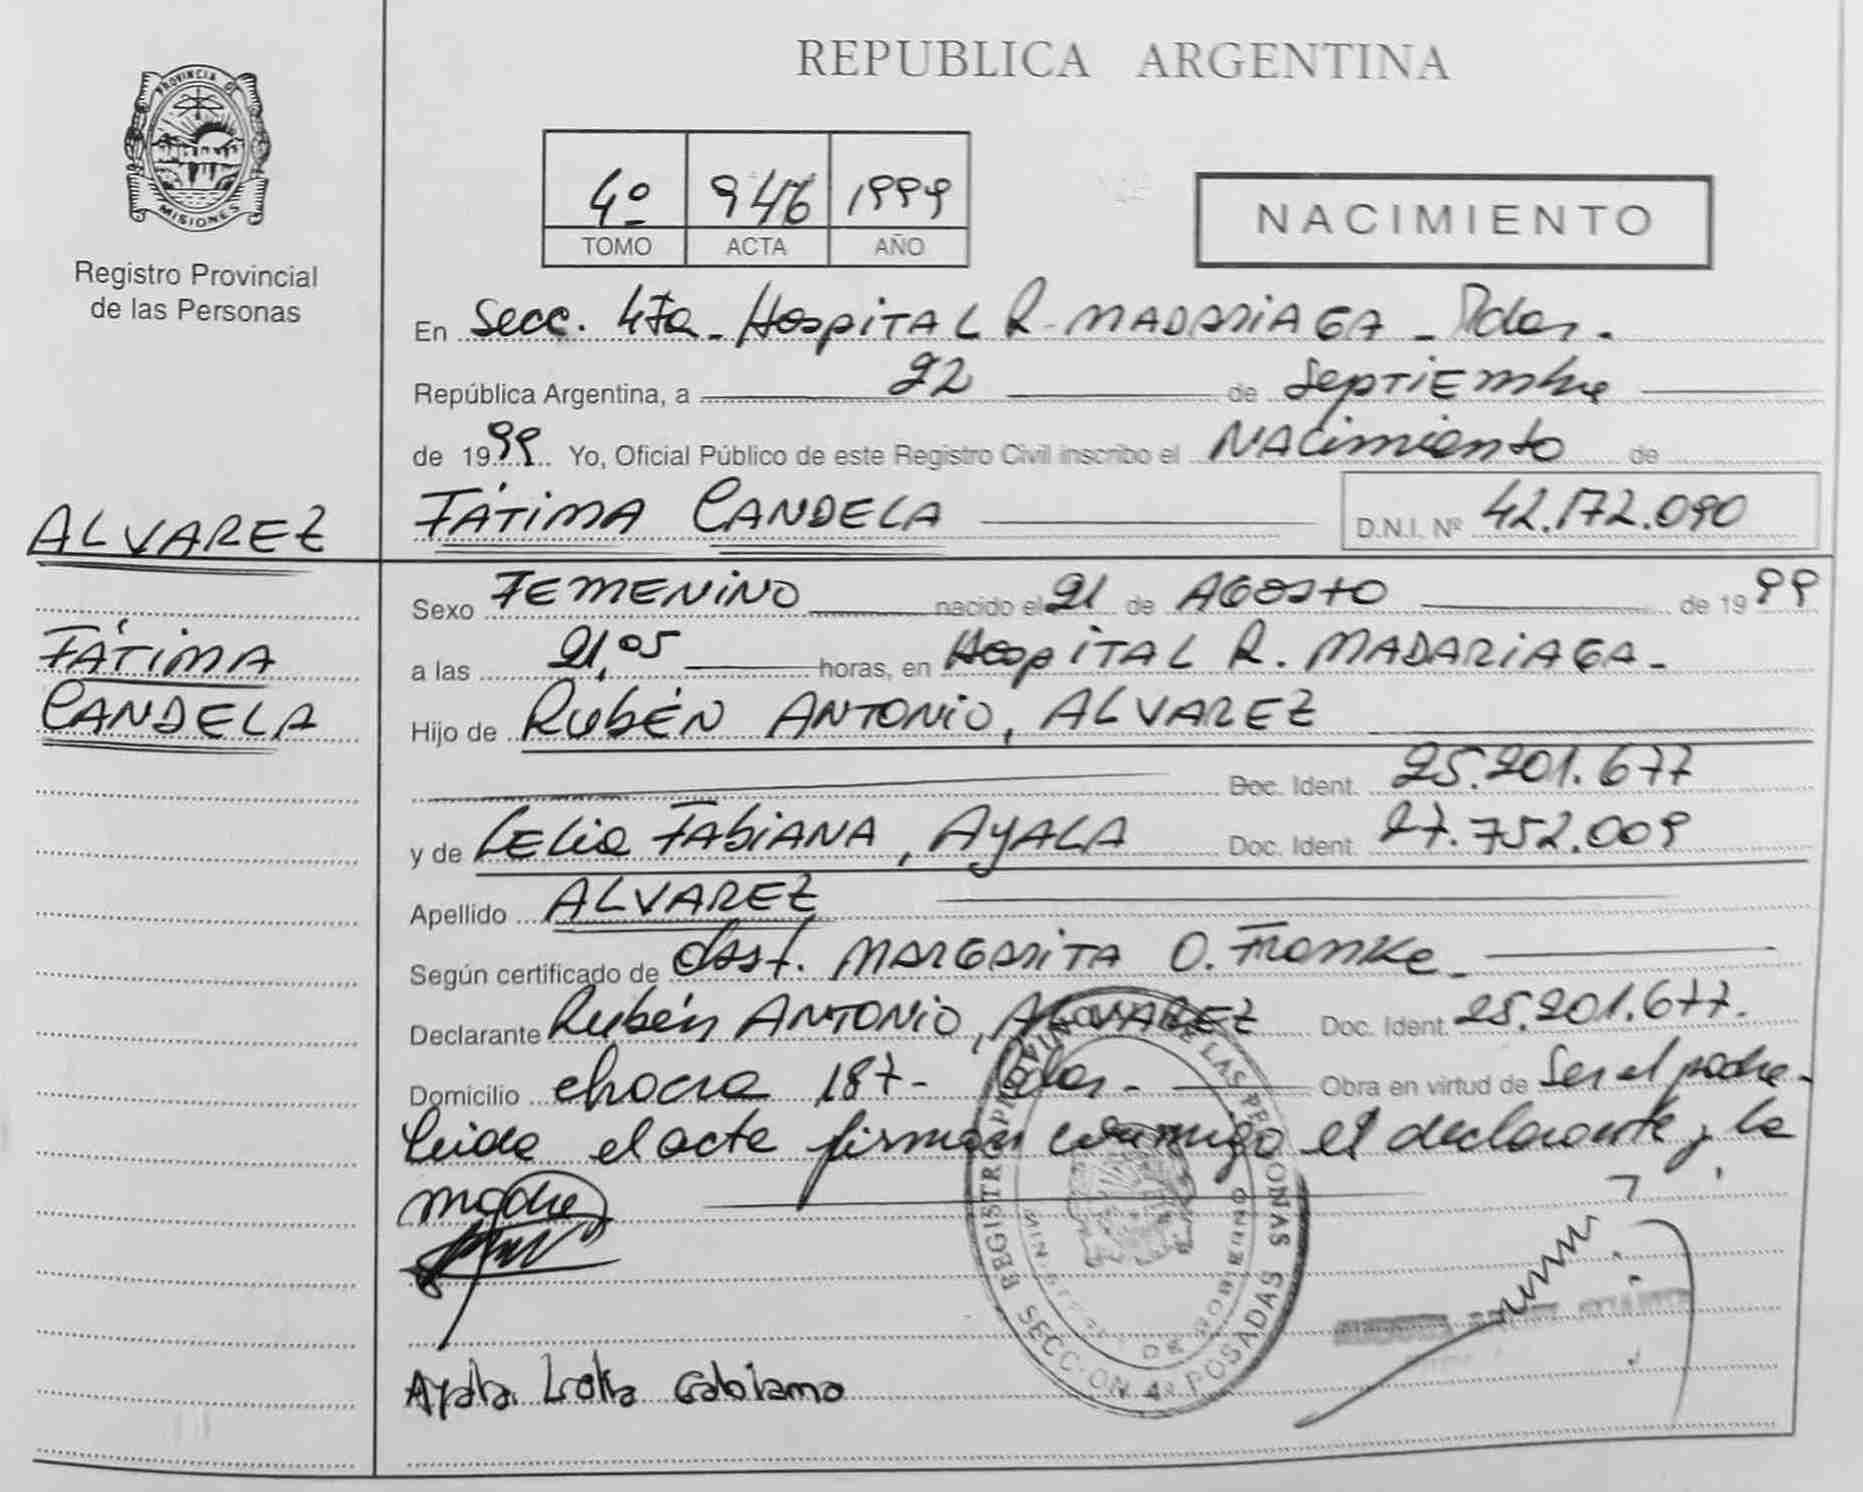 REPUBLICA ARGENTINA
PROVINCIA DE MISIONES
Registro Provincial
de las Personas
4º 946 1999
TOMO ACTA AÑO
NACIMIENTO
En Secc. 4ta - Hospital R. MADARIAGA - Pdas.
República Argentina, a 22 de Septiembre
de 1999 Yo, Oficial Público de este Registro Civil inscribo el NAcimiento de
ALVAREZ
FÁTIMA CANDELA D.N.I. Nº 42.172.090
Sexo FEMENINO nacido el 21 de AGOSTO de 1999
FÁTIMA
CANDELA
a las 21,05 horas, en HospITAL R. MADARIAGA-
Hijo de RUBÉN ANTONIO, ALVAREZ
Doc. Ident. 25.201.677
y de LELIA FABIANA, AYALA Doc. Ident. 27.752.009
Apellido ALVAREZ
Según certificado de Obst. MARGARITA O. Franke-
Declarante Rubén ANTONIO, ALVAREZ Doc. Ident. 25.201.677.
Domicilio chacra 187- Pdas.- Obra en virtud de Ser el padre-
Leida el acta firman conmigo el declarante y la
madre
Ayala Lelia Fabiana
REGISTRO PROVINCIAL DE LAS PERSONAS
MINISTERIO DE GOBIERNO
SECCION 4ª POSADAS